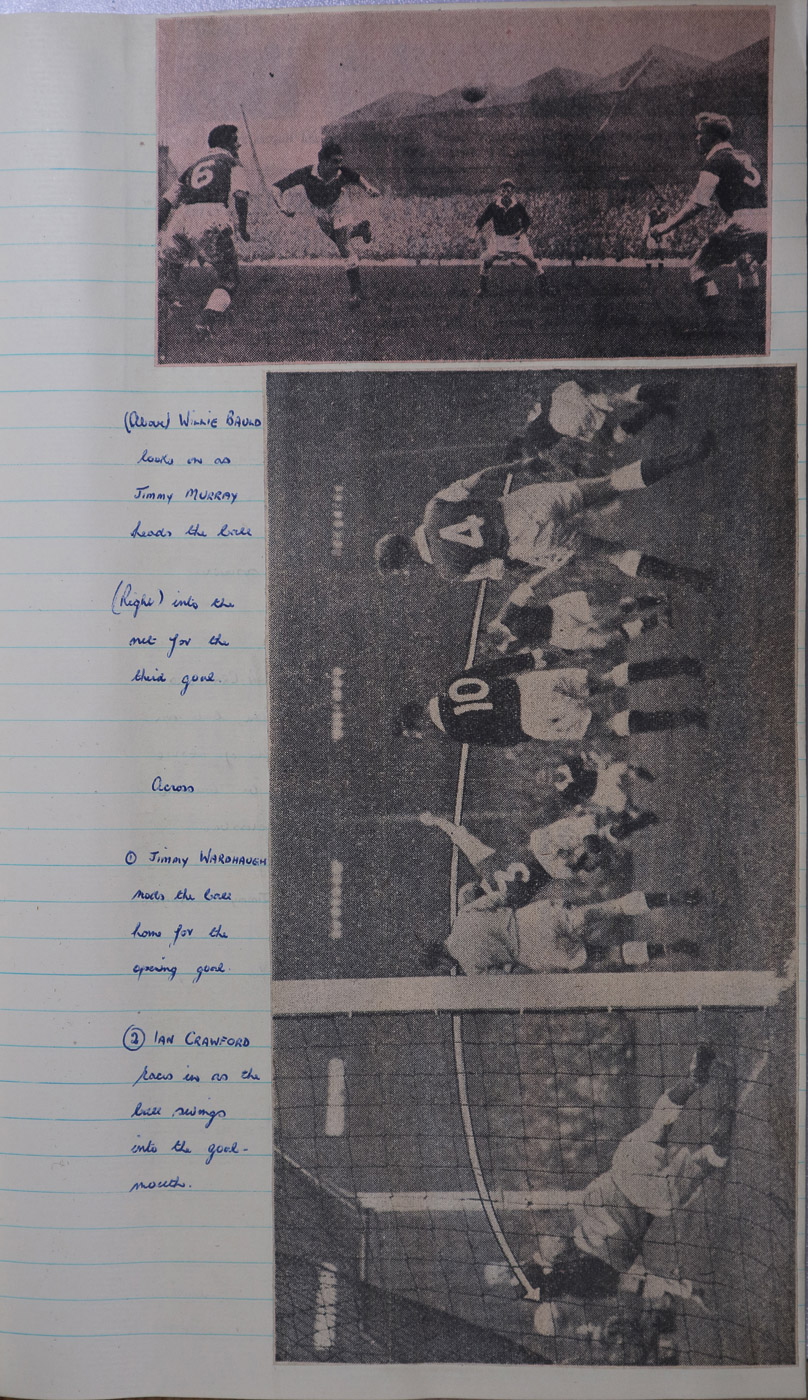 6
3
(Above) WILLIE BAULD
looks on as
Jimmy MURRAY
heads the ball
(Right) into the
net for the
third goal.
Across
① Jimmy WARDHAUGH
nods the ball
home for the
opening goal.
② IAN CRAWFORD
races in as the
ball swings
into the goal-
mouth.
4
10
3